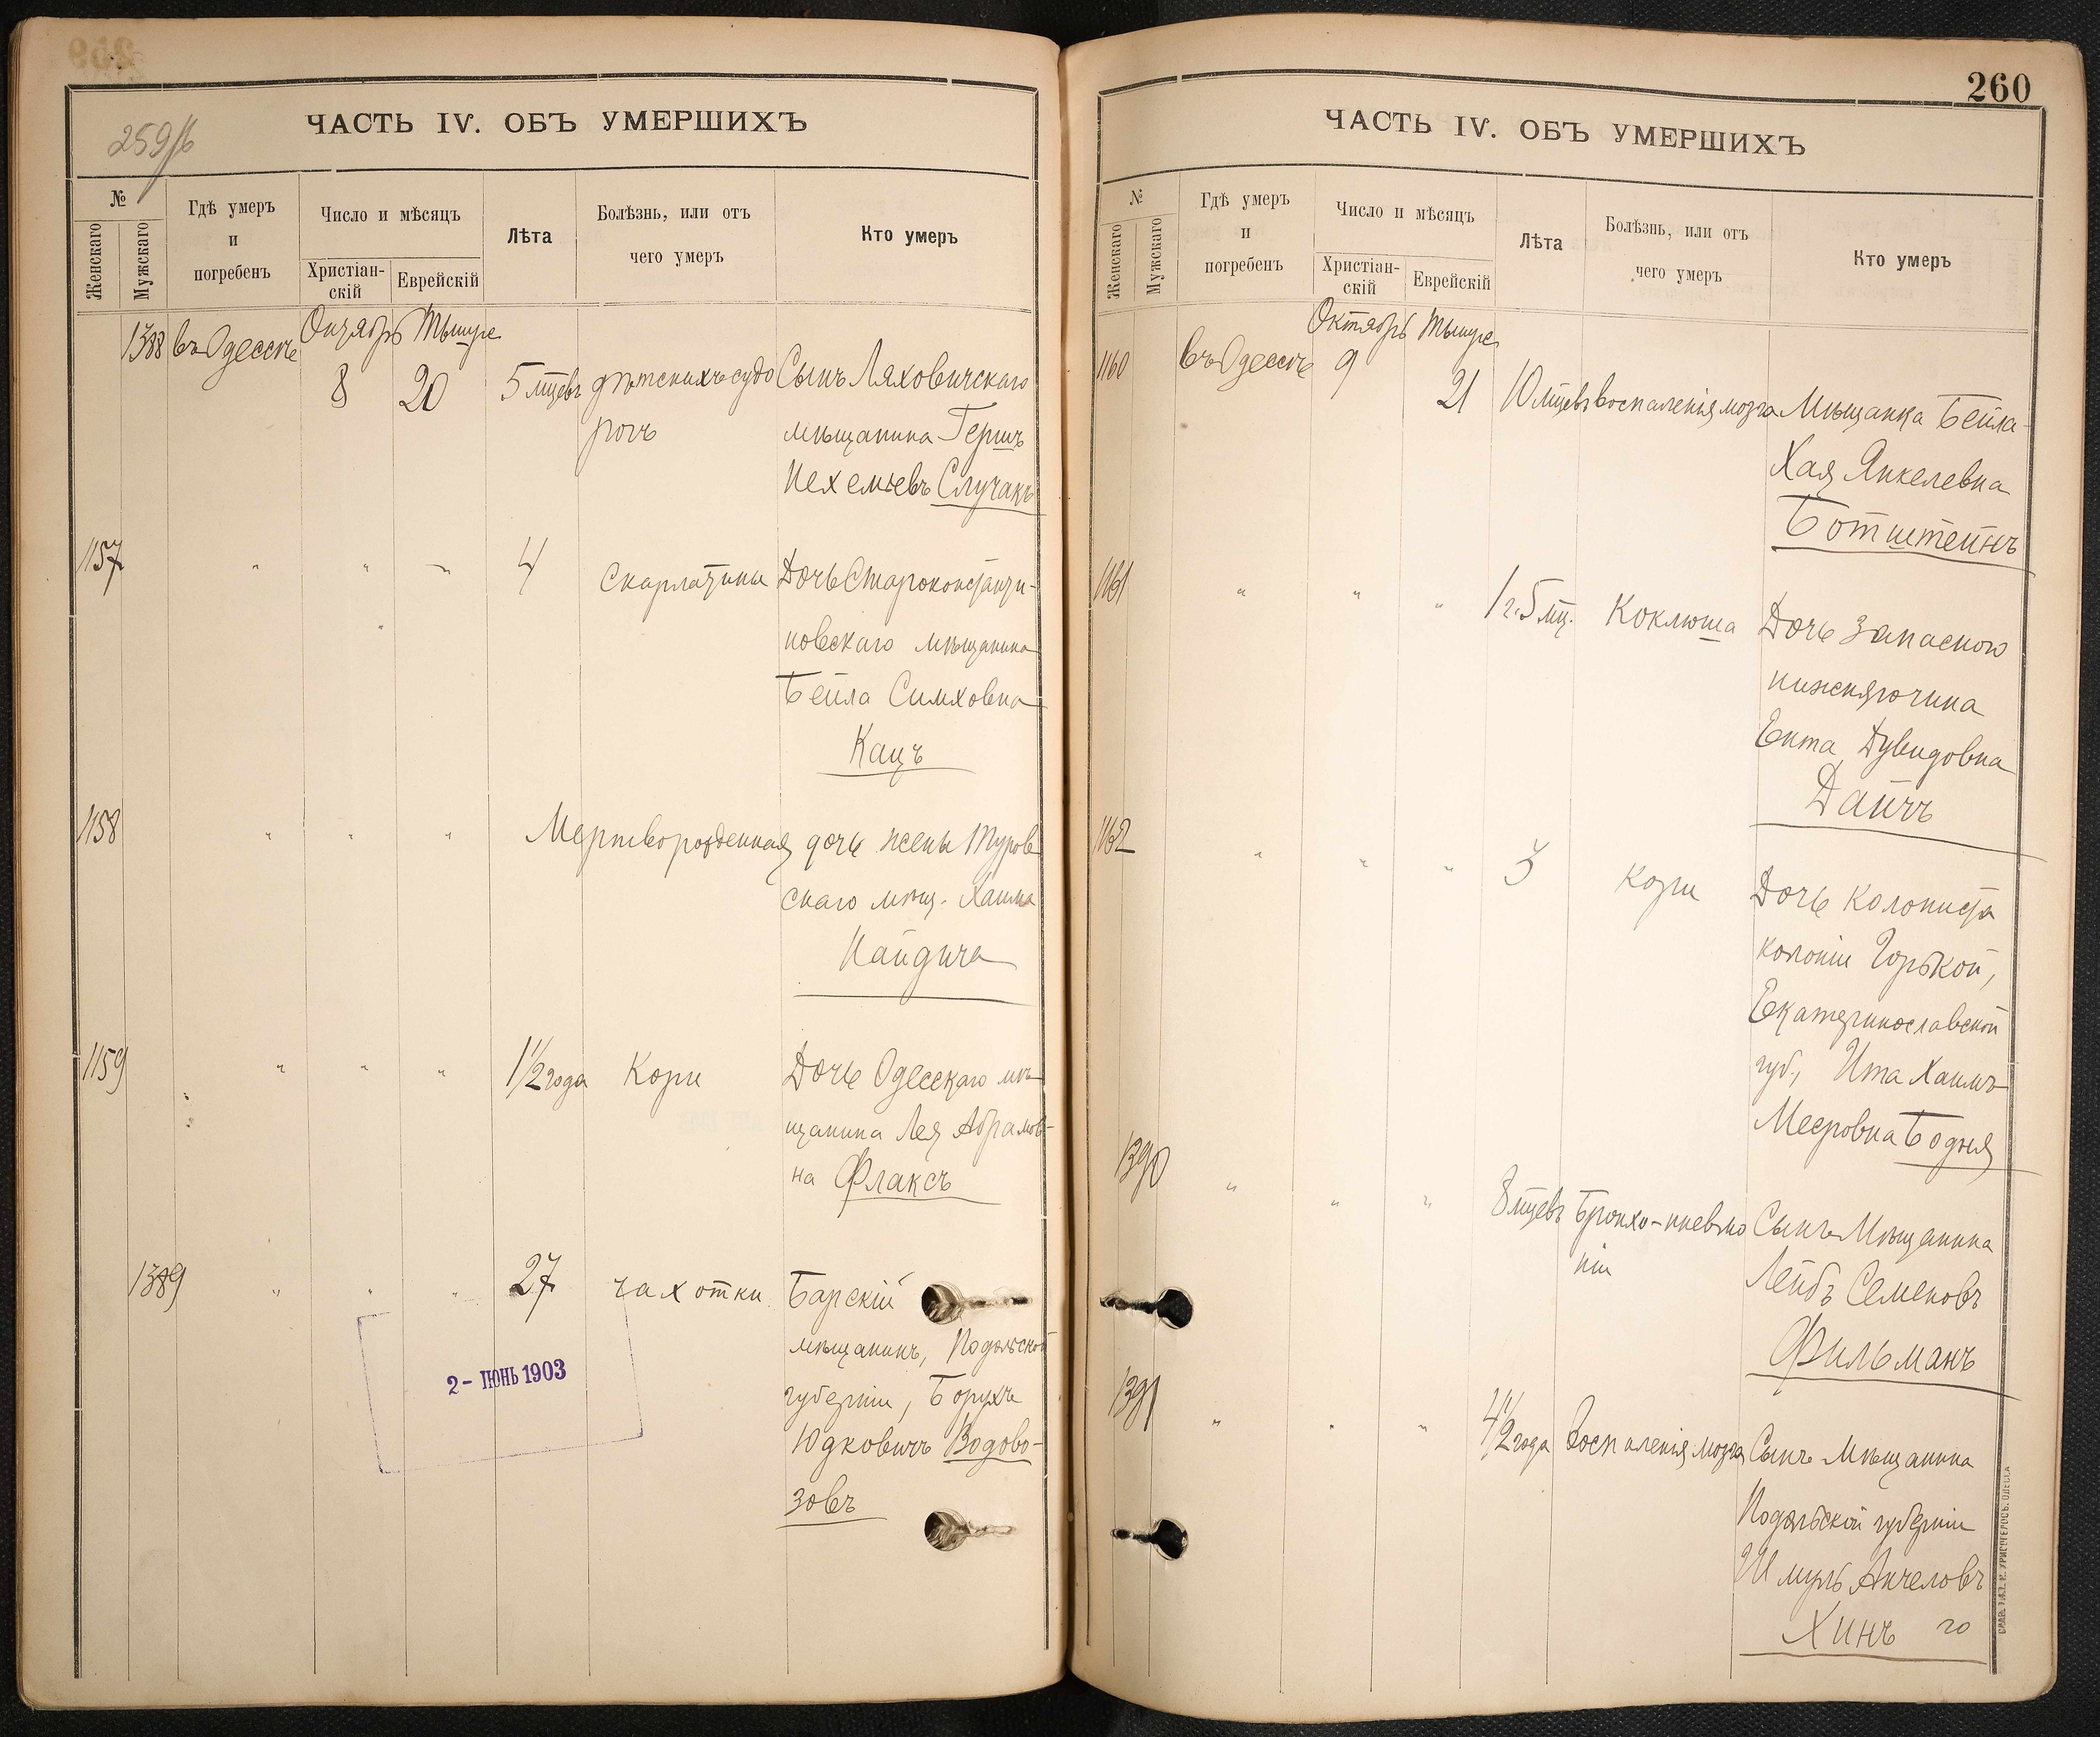 259
259/б
ЧАСТЬ IV. ОБЪ УМЕРШИХЪ
№
Женскаго
Мужскаго
Гдѣ умеръ
и
погребенъ
Число и мѣсяцъ
Христіан-
скій
Еврейскій
Лѣта
Болѣзнь, или отъ
чего умеръ
Кто умеръ
1388 въ Одессѣ Октябрь Тышре
8 20 5 мцевъ дѣтскихъ судо Сынъ Ляховичскаго
рогъ мѣщанина Гершъ
Нехемьевъ Случакъ
1157 " " " 4 скарлатины Дочь Староконстанти-
новскаго мѣщанина
Бейла Симховна
Кацъ
1158 " " " Мертворожденная дочь жены Туров
скаго мѣщ. Хаима
Найдича
1159 " " " 1 1/2 года Кори Дочь Одесскаго мѣ
щанина Лея Абрамов-
на Флаксъ
1389 " " " 27 чахотки Барскій
мѣщанинъ, Подольской
губерніи, Борухъ
Юдковичъ Водово-
зовъ
2 - ІЮНЬ 1903
260
ЧАСТЬ IV. ОБЪ УМЕРШИХЪ
№
Женскаго
Мужскаго
Гдѣ умеръ
и
погребенъ
Число и мѣсяцъ
Христіан-
скій
Еврейскій
Лѣта
Болѣзнь, или отъ
чего умеръ
Кто умеръ
1160 въ Одессѣ Октябрь Тышре
9 21 10 мцевъ воспаленія мозга Мѣщанка Бейла-
Хая Янкелевна
Ботштейнъ
1161 " " " 1 г. 5 мц. Коклюша Дочь запасного
нижняго чина
Ента Дувидовна
Дайчъ
1162 " " " 3 кори Дочь колониста
колоніи Горькой,
Екатеринославской
губ., Ита Хаимъ-
Мееровна Бодня
1390 " " " 8 мцевъ Бронхо-пневмо Сынъ Мѣщанина
ніи Лейбъ Семеновъ
Фильманъ
1391 " " " 4 1/2 года Воспаленія мозга Сынъ Мѣщанина
Подольской губерніи
Шмуль Анчеловъ
Хинъ го